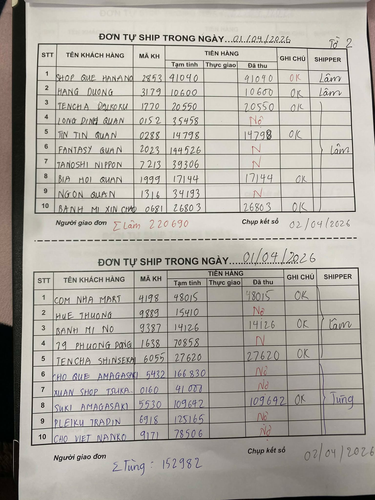 ĐƠN TỰ SHIP TRONG NGÀY....01/04/2026
Tờ 2
STT TÊN KHÁCH HÀNG MÃ KH TIỀN HÀNG GHI CHÚ SHIPPER
Tạm tính Thực giao Đã thu
1 SHOP QUE HANANO 2853 91040 91040 OK Lâm
2 HANG DUONG 3179 10600 10600 OK Lâm
3 TENCHA DAIKOKU 1770 20550 20550 OK
4 LONG DINH QUAN 0152 35458 Nợ
5 TIN TIN QUAN 0288 14798 14798 OK
6 FANTASY QUAN 2023 144526 N Lâm
7 TANOSHI NIPPON 7213 39306 N
8 BIA HOI QUAN 1999 17144 17144 OK
9 NGON QUAN 1316 34193 N
10 BANH MI XIN CHAO 0681 26803 26803 OK
Người giao đơn Σ Lâm 220690 Chụp kết sổ 02/04/2026
ĐƠN TỰ SHIP TRONG NGÀY....01/04/2026
STT TÊN KHÁCH HÀNG MÃ KH TIỀN HÀNG GHI CHÚ SHIPPER
Tạm tính Thực giao Đã thu
1 COM NHA MART 4198 48015 48015 OK
2 HUE THUONG 9889 15410 Nợ
3 BANH MI NO 9387 14126 14126 OK Lâm
4 79 PHUONG DONG 1638 70858 N
5 TENCHA SHINSEKAI 6055 27620 27620 OK
6 CHO QUE AMAGASAKI 5432 166830 Nợ
7 XUAN SHOP 0160 Nợ
8 SUKI AMAGASAKI 5530 109642 109642 OK Tùng
9 PLEIKU TRADIN 6918 125165 Nợ
10 CHO VIET NANKO 9171 78506 Nợ
Người giao đơn Σ Tùng: 152982 Chụp kết sổ 02/04/2026